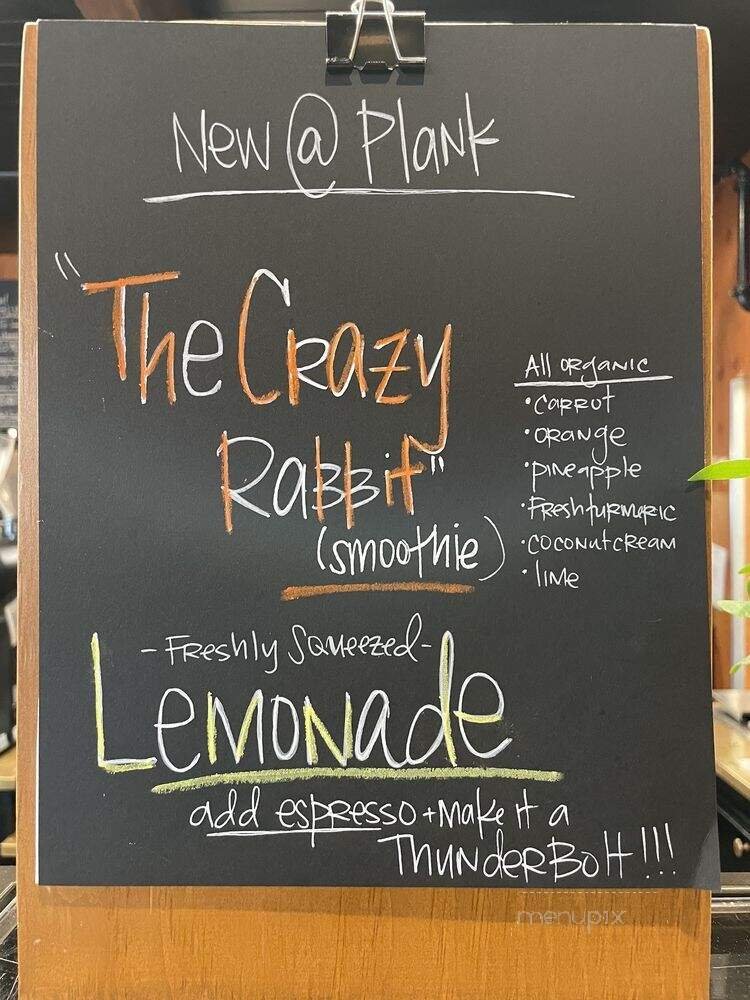 New @ Plank
"The Crazy
Rabbit"
(smoothie)
All organic
• carrot
• orange
• pineapple
• Fresh turmeric
• coconut cream
• lime
- Freshly Squeezed -
Lemonade
add espresso + make it a
Thunderbolt!!!
menupix